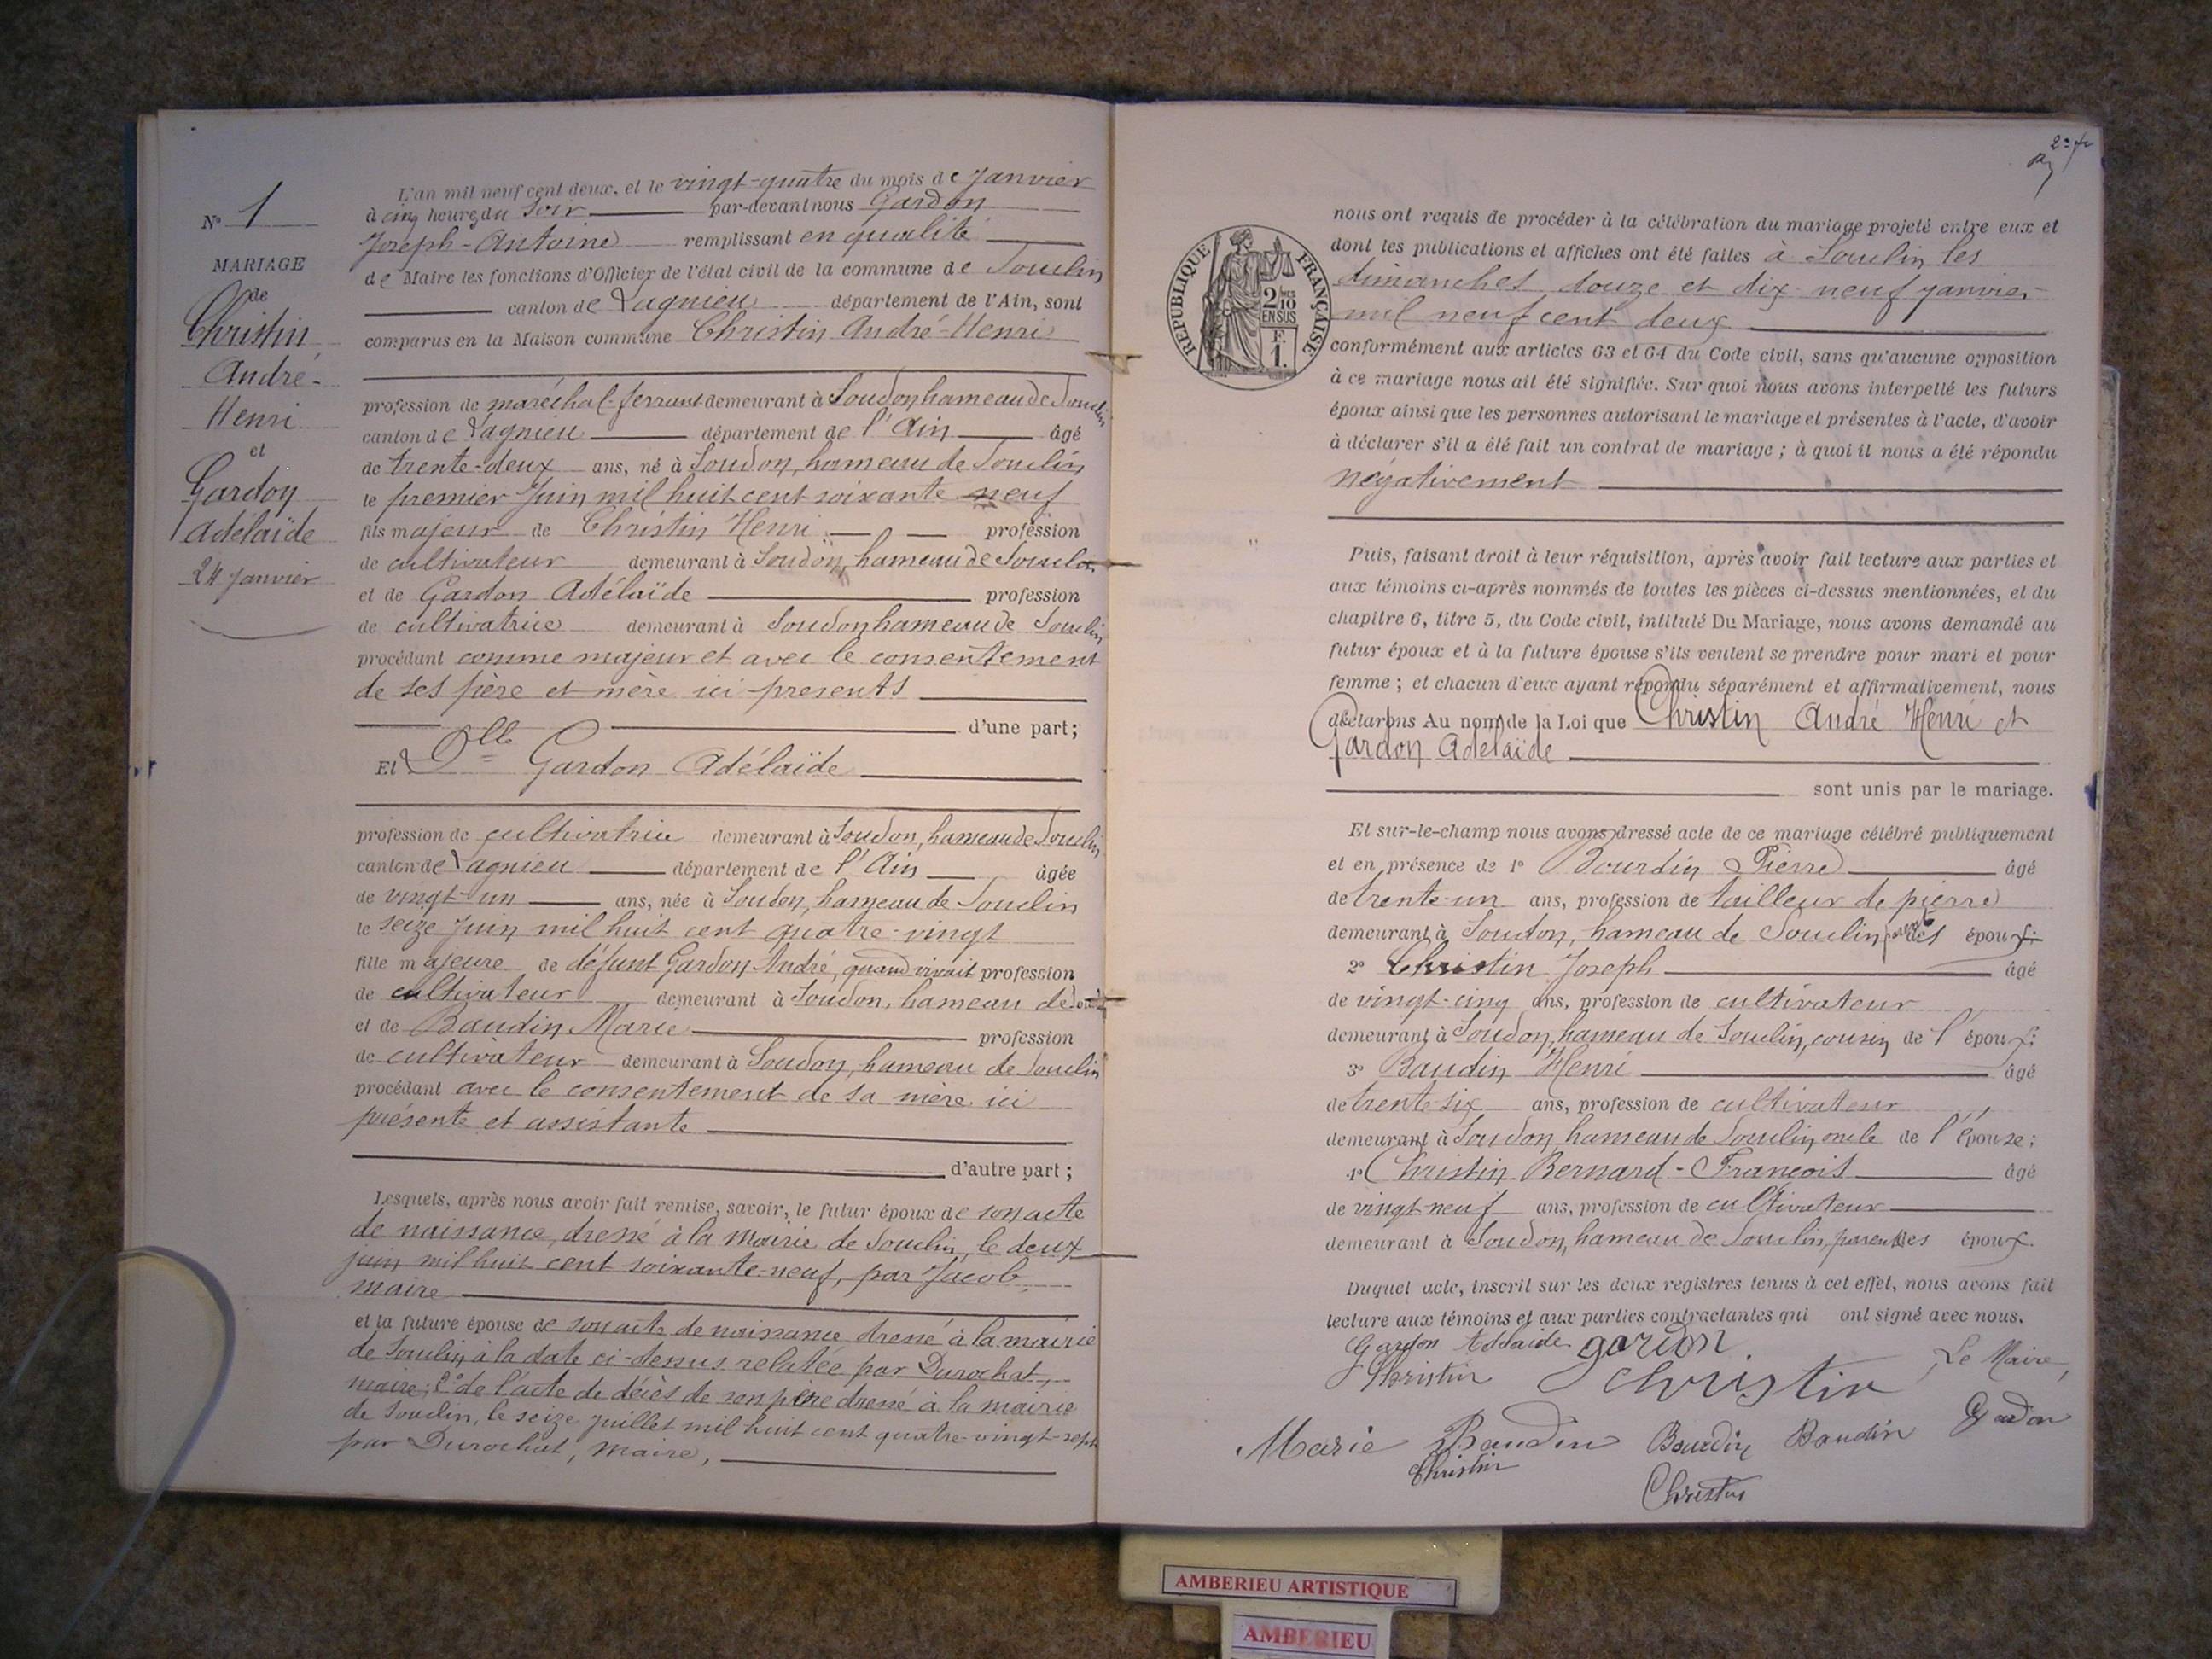 N° 1
MARIAGE
de
Christin
André-
Henri
et
Gardon
Adélaïde
24 janvier
L'an mil neuf cent deux, et le vingt-quatre du mois de Janvier
à cinq heures du soir par-devant nous Gardon
Joseph-Antoine remplissant en qualité
de Maire les fonctions d'Officier de l'état civil de la commune de Souclin
canton de Lagnieu département de l'Ain, sont
comparus en la Maison commune Christin André-Henri
profession de maréchal-ferrant demeurant à Soudon hameau de Souclin
canton de Lagnieu département de l'Ain âgé
de trente-deux ans, né à Soudon, hameau de Souclin
le premier Juin mil huit cent soixante neuf
fils majeur de Christin Henri profession
de cultivateur demeurant à Soudon, hameau de Souclin
et de Gardon Adélaïde profession
de cultivatrice demeurant à Soudon hameau de Souclin
procédant comme majeur et avec le consentement
de ses père et mère ici presents
d'une part;
Et Dlle Gardon Adélaïde
profession de cultivatrice demeurant à Soudon, hameau de Souclin
canton de Lagnieu département de l'Ain âgée
de vingt-un ans, née à Soudon, hameau de Souclin
le seize Juin mil huit cent quatre-vingt
fille majeure de défunt Gardon André, quand vivait profession
de cultivateur demeurant à Soudon, hameau de
et de Baudin Marie profession
de cultivateur demeurant à Soudon, hameau de Souclin
procédant avec le consentement de sa mère ici
présente et assistante
d'autre part;
Lesquels, après nous avoir fait remise, savoir, le futur époux de son acte
de naissance, dressé à la mairie de Souclin, le deux
juin mil huit cent soixante-neuf, par Jacob
maire
et la future épouse de son acte de naissance dressé à la mairie
de Souclin à la date ci-dessus relatée par Durochat,
maire; 2° de l'acte de décès de son père dressé à la mairie
de Souclin, le seize juillet mil huit cent quatre-vingt-sept
par Durochat, maire,
2e f
RÉPUBLIQUE FRANÇAISE
2/10
EN SUS
F.
1.
nous ont requis de procéder à la célébration du mariage projeté entre eux et
dont les publications et affiches ont été faites à Souclin les
dimanches douze et dix-neuf janvier
mil neuf cent deux
conformément aux articles 63 et 64 du Code civil, sans qu'aucune opposition
à ce mariage nous ait été signifiée. Sur quoi nous avons interpellé les futurs
époux ainsi que les personnes autorisant le mariage et présentes à l'acte, d'avoir
à déclarer s'il a été fait un contrat de mariage; à quoi il nous a été répondu
négativement
Puis, faisant droit à leur réquisition, après avoir fait lecture aux parties et
aux témoins ci-après nommés de toutes les pièces ci-dessus mentionnées, et du
chapitre 6, titre 5, du Code civil, intitulé Du Mariage, nous avons demandé au
futur époux et à la future épouse s'ils veulent se prendre pour mari et pour
femme; et chacun d'eux ayant répondu séparément et affirmativement, nous
déclarons Au nom de la Loi que Christin André Henri et
Gardon Adélaïde
sont unis par le mariage.
Et sur-le-champ nous avons dressé acte de ce mariage célébré publiquement
et en présence de 1° Bourdin Pierre âgé
de trente-un ans, profession de tailleur de pierre
demeurant à Soudon, hameau de Souclin, parent des époux;
2° Christin Joseph âgé
de vingt-cinq ans, profession de cultivateur
demeurant à Soudon, hameau de Souclin, cousin de l'époux;
3° Baudin Henri âgé
de trente six ans, profession de cultivateur
demeurant à Soudon, hameau de Souclin, oncle de l'épouse;
4° Christin Bernard-François âgé
de vingt neuf ans, profession de cultivateur
demeurant à Soudon, hameau de Souclin, parent des époux.
Duquel acte, inscrit sur les deux registres tenus à cet effet, nous avons fait
lecture aux témoins et aux parties contractantes qui ont signé avec nous.
Gardon Adelaide gardon
Christin Christin Le Maire,
Marie Baudin Bourdin Baudin Gardon
Christin
Christin
AMBERIEU ARTISTIQUE
AMBERIEU